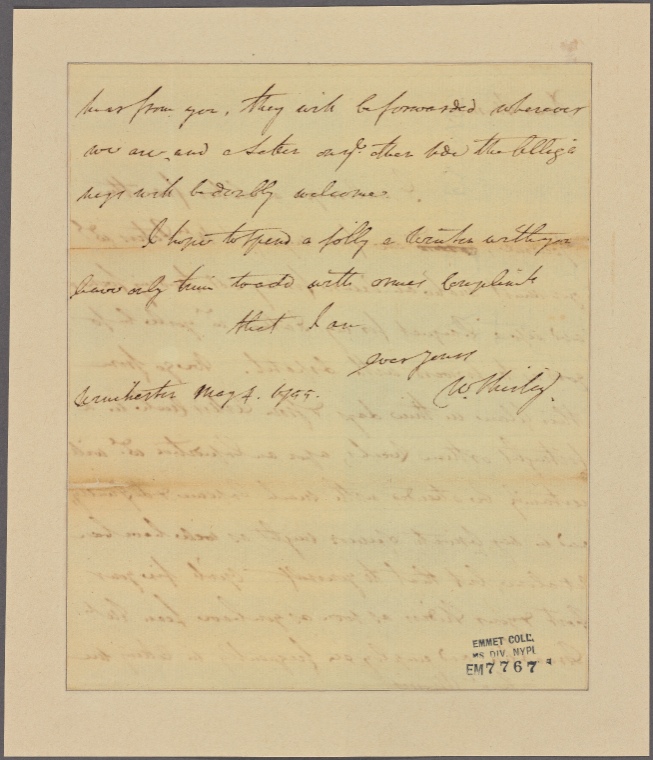 hear from you, they will be forwarded wherever
we are, and a Letter on yᵉ other side the Allega
neys will be doubly welcome.
I hope to spend a jolly a Winter with you
have only time to add with
that I am
ever yours
Winchester May 4. 1755.
W. Shirley.
EMMET COLL.
MS. DIV. NYPL
EM 7767